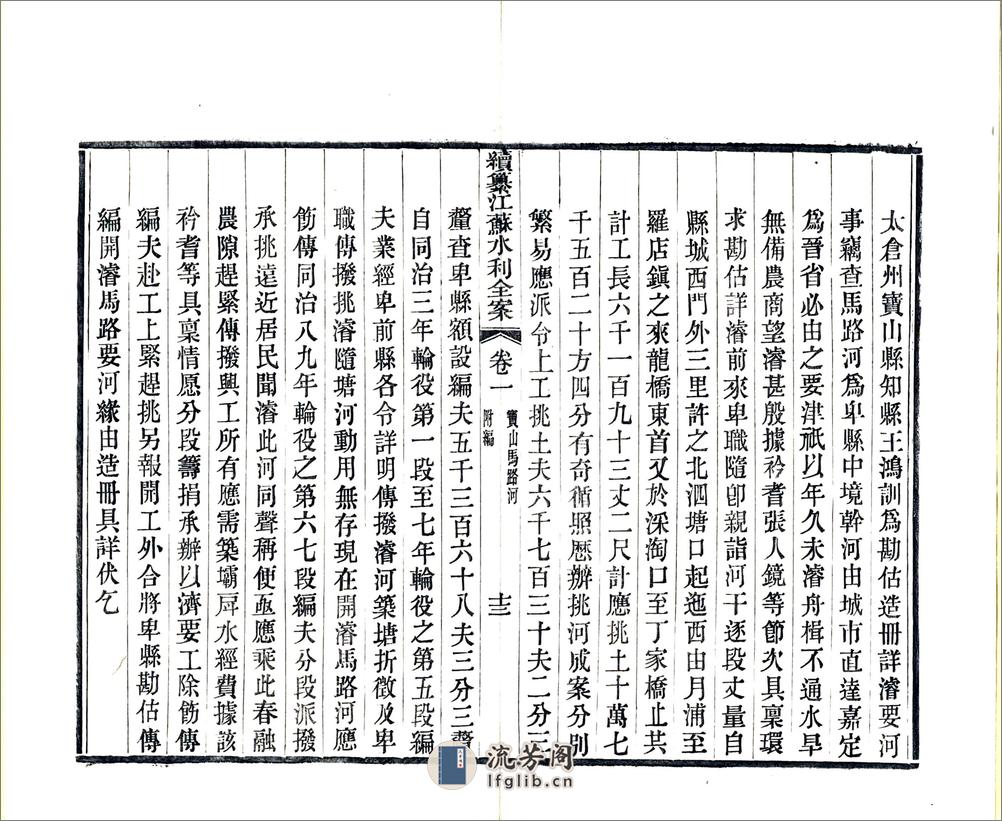 太倉州寶山縣知縣王鴻訓爲勘估造冊詳濬要河
事竊查馬路河爲卑縣中境幹河由城市直達嘉定
爲晉省必由之要津祇以年久未濬舟楫不通水旱
無備農商望濬甚殷據衿耆張人鏡等節次具稟環
求勘估詳濬前來卑職隨卽親詣河干逐段丈量自
縣城西門外三里許之北泗塘口起迤西由月浦至
羅店鎭之來龍橋東首又於深淘口至丁家橋止共
計工長六千一百九十三丈二尺計應挑土十萬七
千五百二十方四分有奇循照歷辦挑河成案分別
繁易應派令上工挑土夫六千七百三十夫二分三
續纂江蘇水利全案 卷一 寶山馬路河 附編 十三
釐查卑縣額設編夫五千三百六十八夫三分三釐
自同治三年輪役第一段至七年輪役之第五段編
夫業經卑前縣各令詳明傳撥濬河築塘折徵及卑
職傳撥挑濬隨塘河動用無存現在開濬馬路河應
飭傳同治八九年輪役之第六七段編夫分段派撥
承挑遠近居民聞濬此河同聲稱便亟應乘此春融
農隙趕緊傳撥興工所有應需築壩戽水經費據該
衿耆等具稟情愿分段籌捐承辦以濟要工除飭傳
編夫赴工上緊趕挑另報開工外合將卑縣勘估傳
編開濬馬路要河緣由造冊具詳伏乞
流芳阁
lfglib.cn